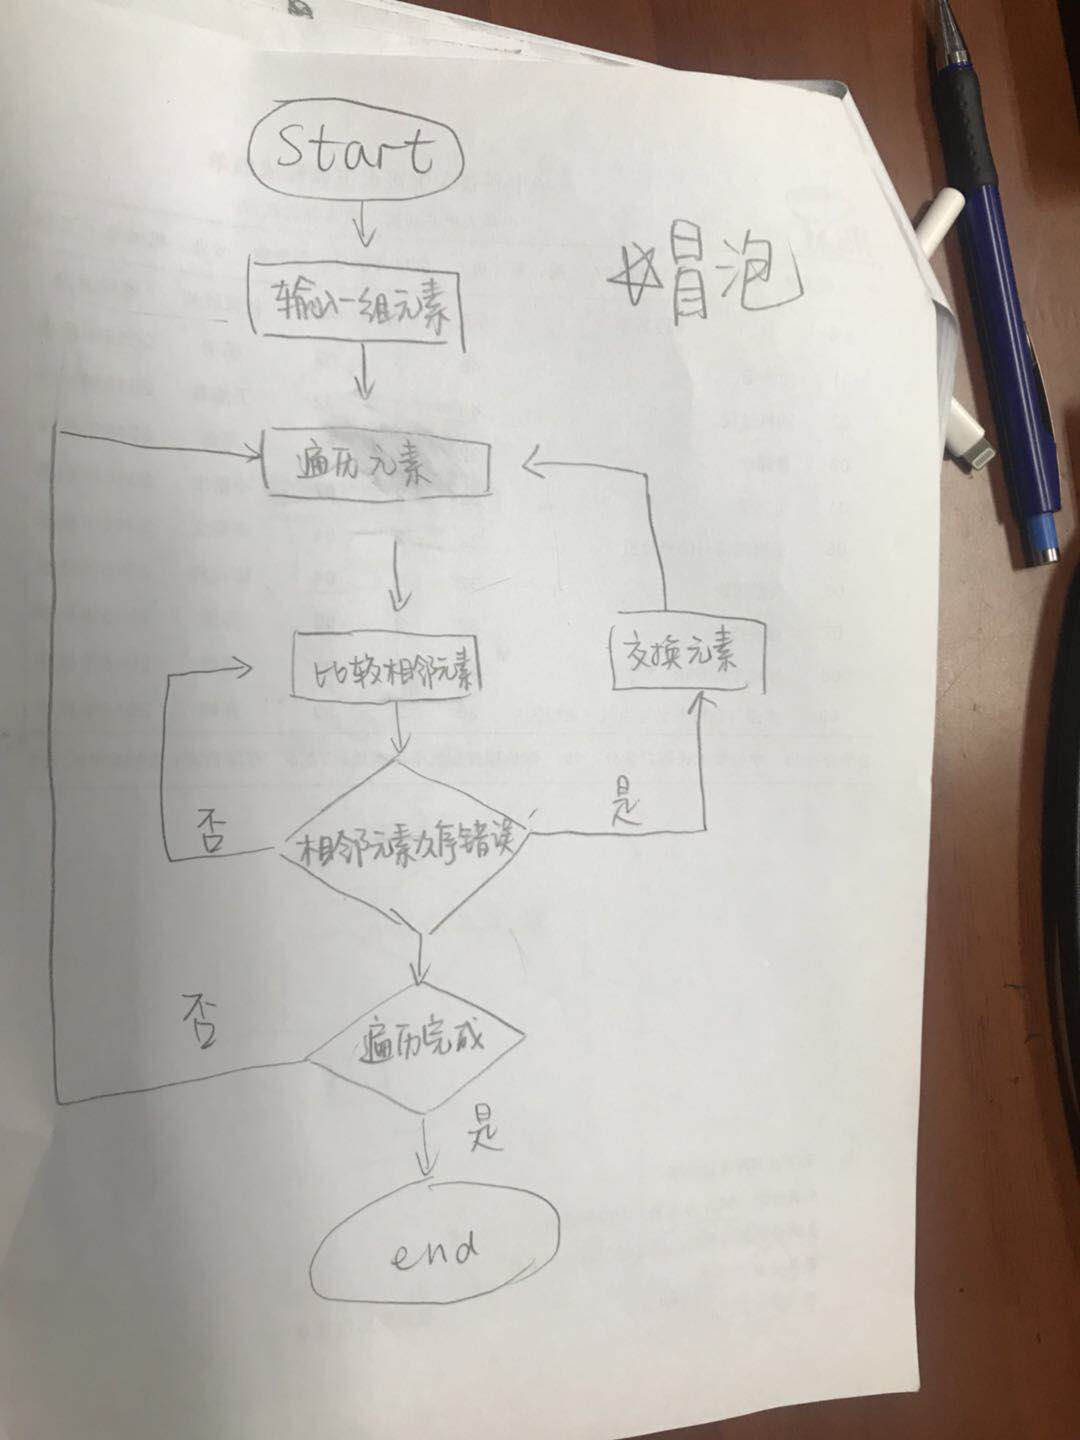 Start
冒泡
输入一组元素
遍历元素
比较相邻元素
交换元素
相邻元素次序错误
否
是
遍历完成
否
是
end